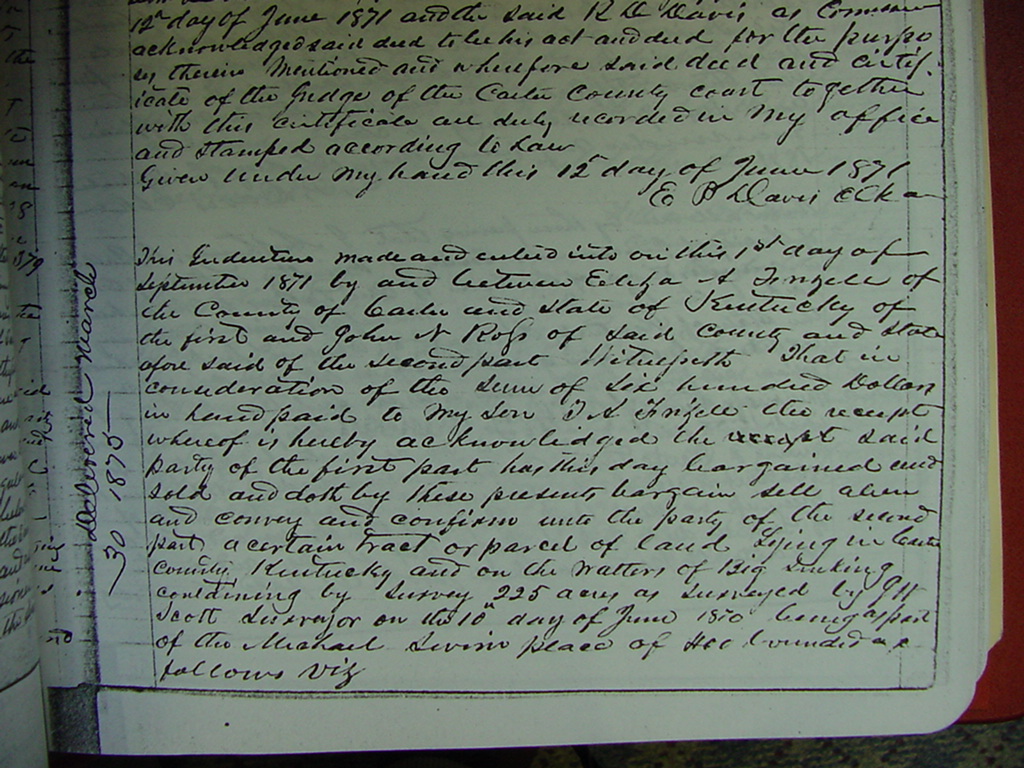 12th day of June 1871 and the said K D Davis as Commr
acknowledged said deed to be his act and deed for the purpo
ses therein Mentioned and wherefore said deed and certif-
icate of the Judge of the Carter County court together
with this certificate are duly recorded in My office
and stamped according to Law
Given under My hand this 12th day of June 1871
E P Davis Clk
This Indenture made and entered into on this 1st day of
September 1871 by and between Eliza A Frizzle of
the County of Carter and State of Kentucky of
the first and John N Ross of said county and state
afore said of the second part Witnesseth That in
consideration of the sum of Six hundred Dollars
in hand paid to My Son T A Frizzle the receipt
whereof is hereby acknowledged the said
party of the first part has this day bargained and
sold and doth by these presents bargain sell alien
and convey and confirm unto the party of the second
part a certain tract or parcel of land Lying in Carter
county Kentucky and on the Watters of Big Sinking
containing by Survey 225 acres as surveyed by
Scott Surveyor on the 10th day of June 1870 being a part
of the Michael place of bounded as
follows Viz
Delivered March
30 1875